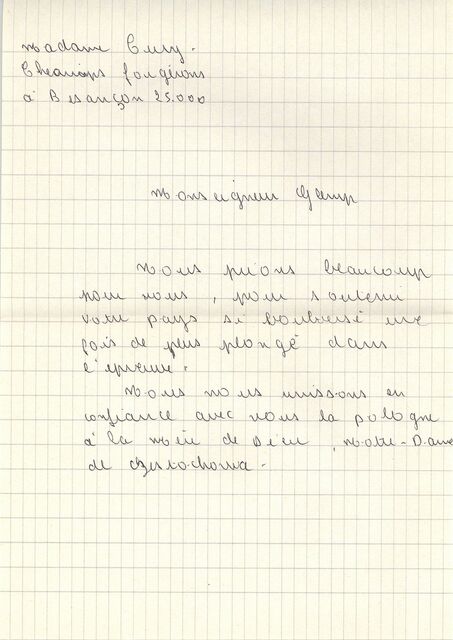 Madame Cury.
à Besançon 25.000
Monseigneur Glemp
Nous prions beaucoup
pour vous, pour soutenir
votre pays si boulversé une
fois de plus plongé dans
l'épreuve.
Nous nous unissons en
confiance avec vous la pologne
à la Mère de Dieu, Notre-Dame
de